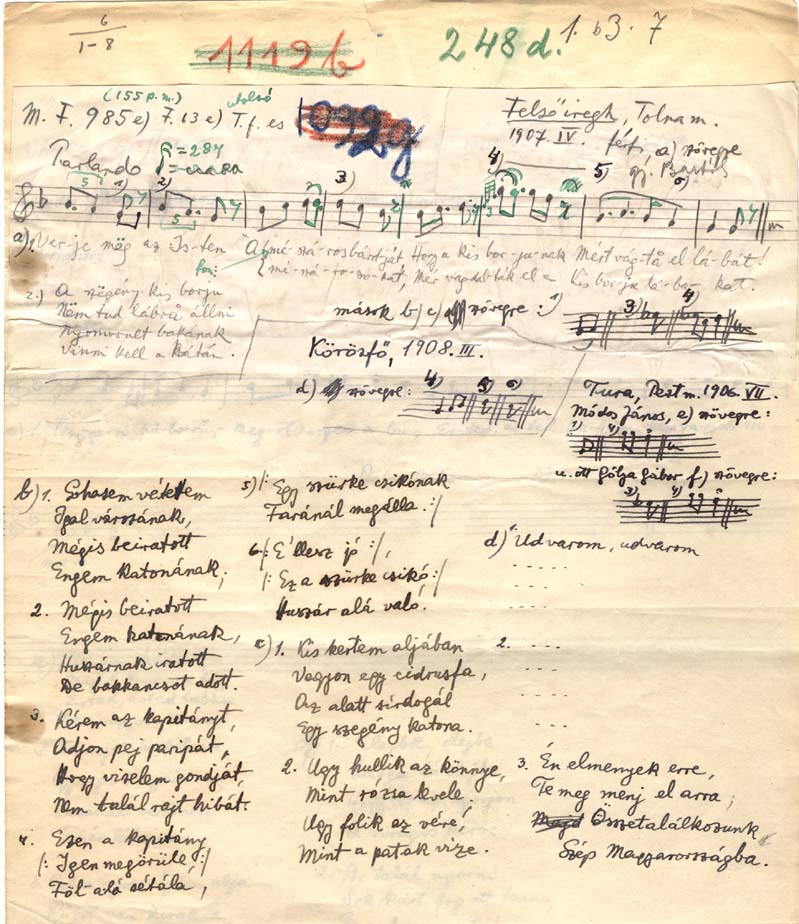 6
1-8
1119b
248d.
1. b 3. 7
(155 p. m.)
utolsó
M. F. 985 e) F. 13 e) T. f. es
Felsőiregh, Tolna m.
1907. IV. férfi, a) szövegre
gy. Bartók
Parlando
= 284
5 1) 2) 5 3) 4) 5) 6)
a) 1. Ver-je még az Is-ten A mé-szá-rosbárdját Hogy a kis bor-ju-nak Mért vág-tá el lá-bát!
mé-szá-ro-so-kat, Mér vagdalták el a kis borju lá-bai-kat.
2.) A szegény kis borju
Nem tud lábrá állni
Nyomorult bakának
Vinni kell a hátán.
mások b) c) szövegre: 1) 3) 4)
Körösfő, 1908. III.
d) szövegre: 4) 5) 6)
Tura, Pest m. 1906. VII.
Módos János, e) szövegre:
1) 4)
u. ott Gólya Gábor f) szövegre:
3) 4)
b) 1. Sohasem vétettem
Igal városának,
Mégis beiratott
Engem katonának;
2. Mégis beiratott
Engem katonának,
Huszárnak iratott
De bakkancsot adott.
3. Kérem az kapitányt,
Adjon pej paripát,
Hogy viselem gondját,
Nem talál rajt hibát.
4. Ezen a kapitány
/: Igen megörüle, :/
Föl-alá sétála,
5) /: Egy szürke csikónak
Faránál megálla. :/
6. /: E' llesz jó :/,
/: Ez a szürke csikó :/
Huszár alá való.
c) 1. Kis kertem aljában
Vagyon egy cidrusfa,
Az alatt sirdogál
Egy szegény katona.
2. Ugy hullik az könnye,
Mint rózsa levele.
Ugy folik az vére,
Mint a patak vize.
d) 1. Udvarom, udvarom
. . . . .
. . . . .
. . . . .
2. . . . .
. . . .
. . . .
. . . .
3. Én elmenyek erre,
Te meg menj el arra;
Összetalálkozunk
Szép Magyarországba.